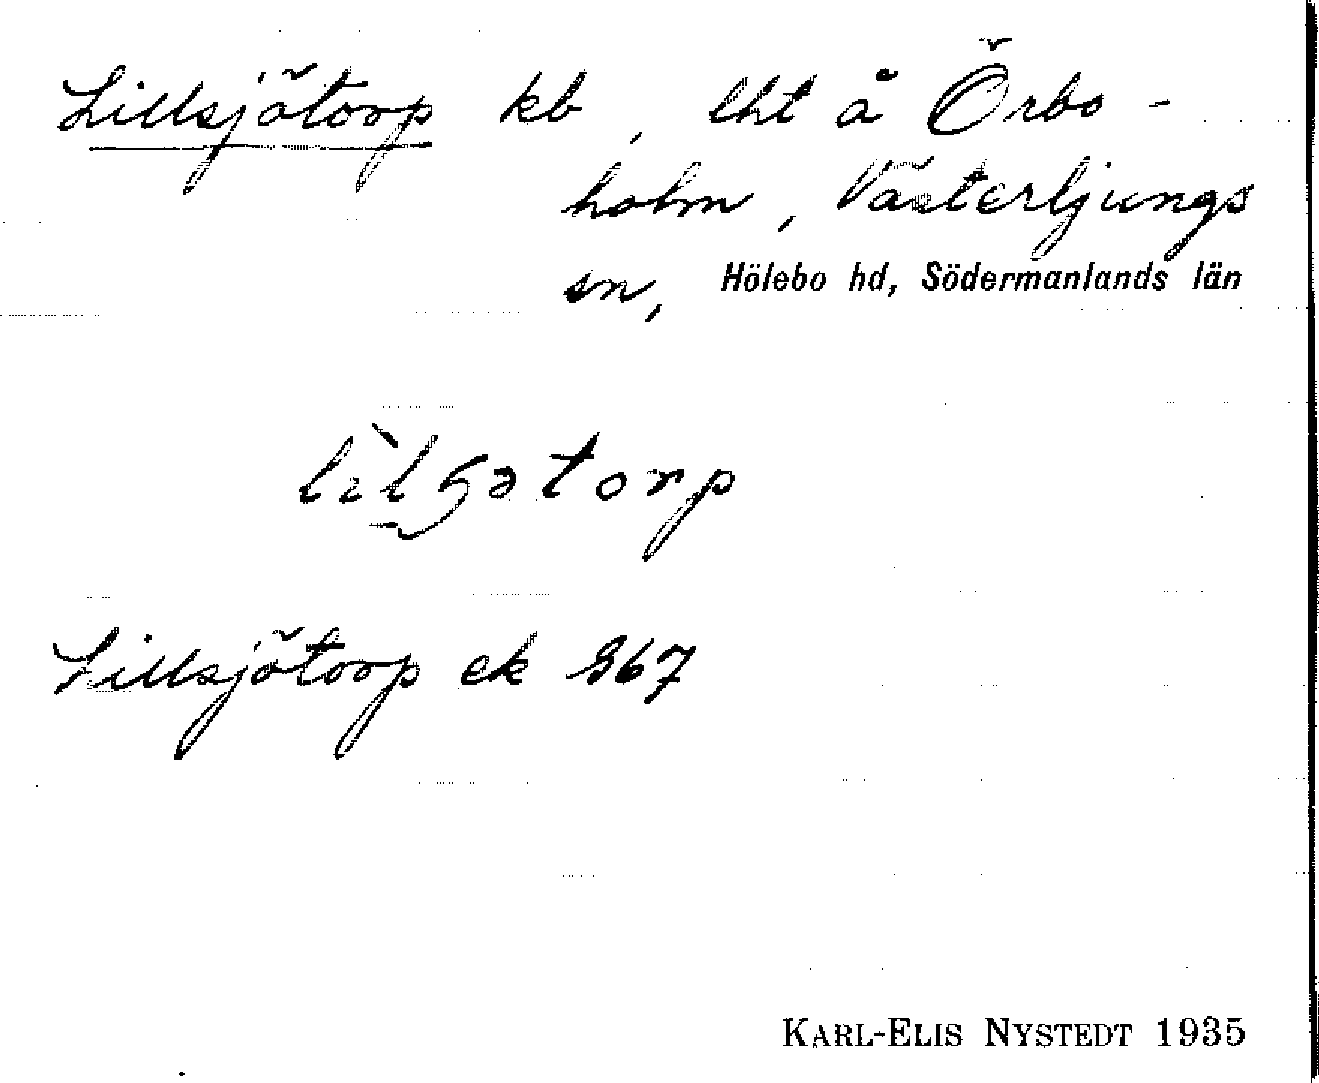 Lillsjötorp kb, lht å Örbo-
holm, Västerljungs
sn, Hölebo hd, Södermanlands län
Lillsjötorp ek 967
KARL-ELIS NYSTEDT 1935